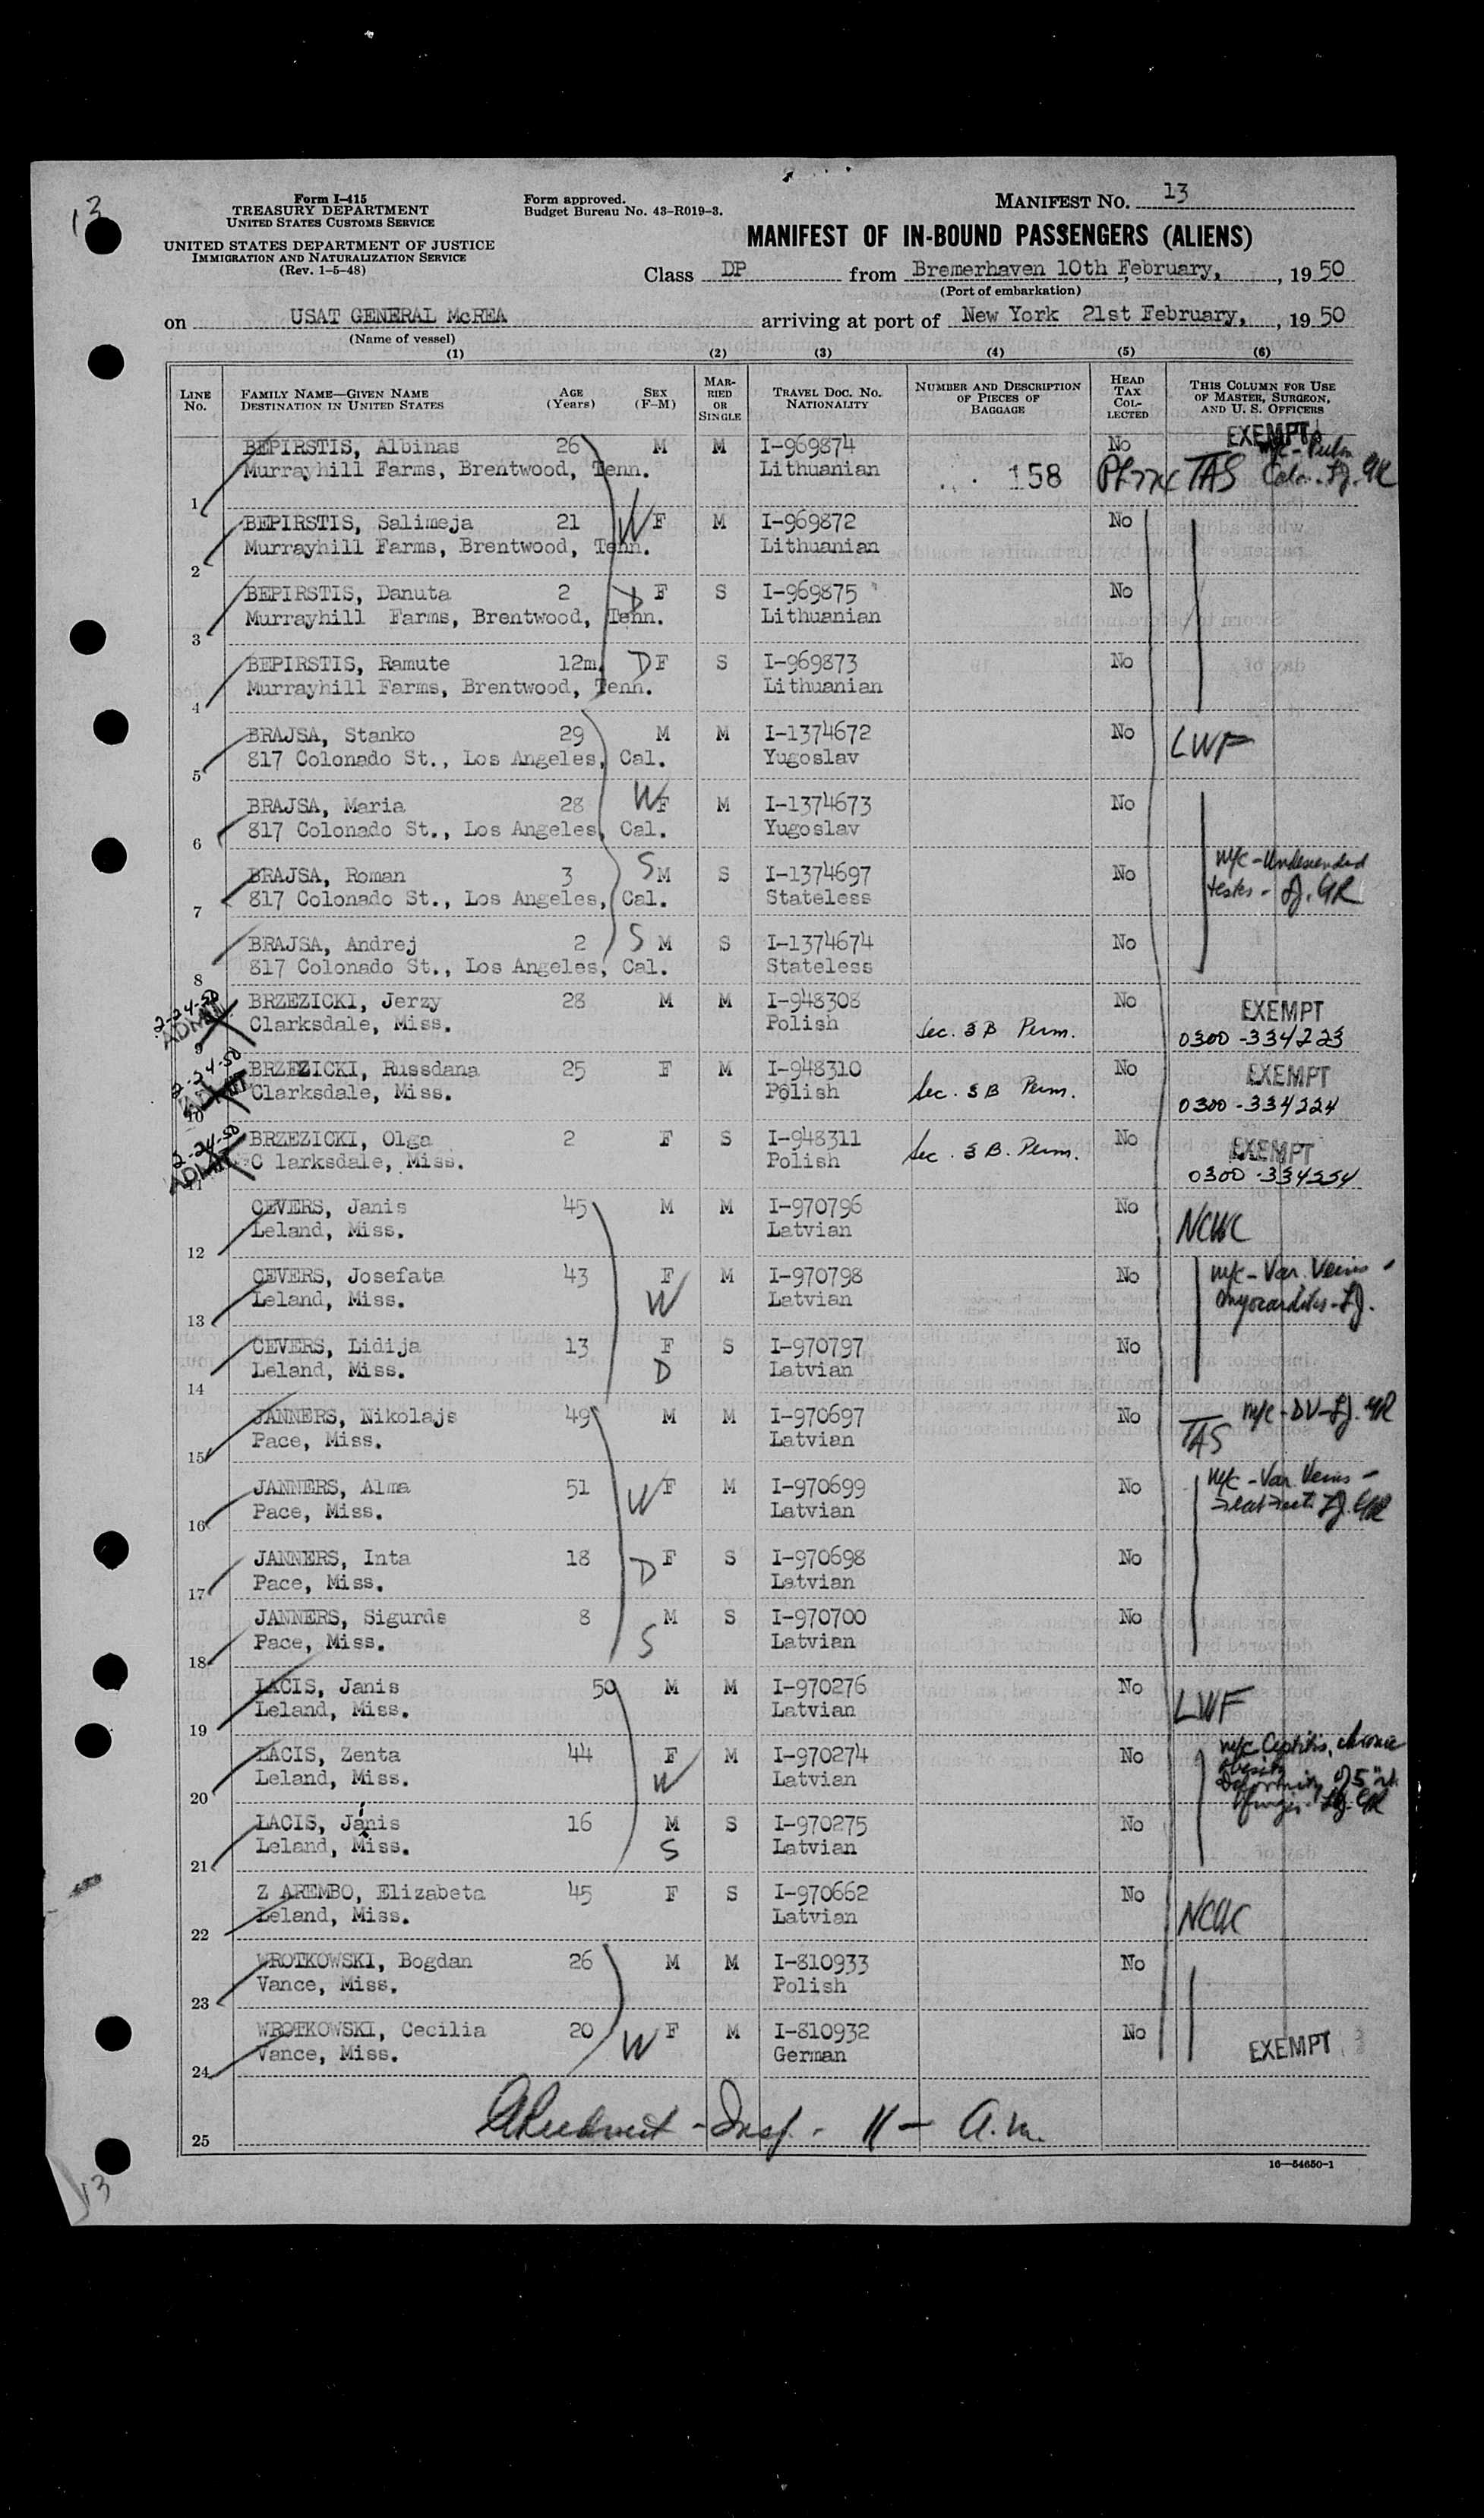 13
Form I-415
TREASURY DEPARTMENT
UNITED STATES CUSTOMS SERVICE
UNITED STATES DEPARTMENT OF JUSTICE
IMMIGRATION AND NATURALIZATION SERVICE
(Rev. 1-5-48)
Form approved.
Budget Bureau No. 43-R019-3.
MANIFEST No. 13
MANIFEST OF IN-BOUND PASSENGERS (ALIENS)
Class DP from Bremerhaven 10th February, , 19 50
(Port of embarkation)
on USAT GENERAL McREA arriving at port of New York 21st February, , 19 50
(Name of vessel)
(1) (2) (3) (4) (5) (6)
LINE No. FAMILY NAME—GIVEN NAME DESTINATION IN UNITED STATES AGE (Years) SEX (F-M) MARRIED OR SINGLE TRAVEL DOC. NO. NATIONALITY NUMBER AND DESCRIPTION OF PIECES OF BAGGAGE HEAD TAX COLLECTED THIS COLUMN FOR USE OF MASTER, SURGEON, AND U. S. OFFICERS
BEPIRSTIS, Albinas 26 M M I-969874 No EXEMPT
1 Murrayhill Farms, Brentwood, Tenn. Lithuanian 158 TAS
BEPIRSTIS, Salimeja 21 W F M I-969872 No
2 Murrayhill Farms, Brentwood, Tenn. Lithuanian
BEPIRSTIS, Danuta 2 D F S I-969875 No
3 Murrayhill Farms, Brentwood, Tenn. Lithuanian
BEPIRSTIS, Ramute 12m D F S I-969873 No
4 Murrayhill Farms, Brentwood, Tenn. Lithuanian
BRAJSA, Stanko 29 M M I-1374672 No LWF
5 817 Colonado St., Los Angeles, Cal. Yugoslav
BRAJSA, Maria 28 W F M I-1374673 No
6 817 Colonado St., Los Angeles, Cal. Yugoslav
BRAJSA, Roman 3 S M S I-1374697 No m/c - Undescended
7 817 Colonado St., Los Angeles, Cal. Stateless testes - GR
BRAJSA, Andrej 2 S M S I-1374674 No
8 817 Colonado St., Los Angeles, Cal. Stateless
2-24-50 BRZEZICKI, Jerzy 28 M M I-948308 No EXEMPT
ADMIT 9 Clarksdale, Miss. Polish Sec. 3 B Perm. 0300-334223
2-24-50 BRZEZICKI, Russdana 25 F M I-948310 No EXEMPT
ADMIT 10 Clarksdale, Miss. Polish Sec. 3 B Perm. 0300-334224
2-24-50 BRZEZICKI, Olga 2 F S I-948311 No EXEMPT
ADMIT 11 C larksdale, Miss. Polish Sec. 3 B. Perm. 0300-334254
CEVERS, Janis 45 M M I-970796 No NCWC
12 Leland, Miss. Latvian
CEVERS, Josefata 43 F M I-970798 No m/c - Var. Veins -
13 Leland, Miss. W Latvian myocarditis -
CEVERS, Lidija 13 F S I-970797 No
14 Leland, Miss. D Latvian
JANNERS, Nikolajs 49 M M I-970697 No m/c - DV - GR
15 Pace, Miss. Latvian TAS
JANNERS, Alma 51 W F M I-970699 No m/c - Var. Veins -
16 Pace, Miss. Latvian GR
JANNERS, Inta 18 D F S I-970698 No
17 Pace, Miss. Latvian
JANNERS, Sigurds 8 M S I-970700 No
18 Pace, Miss. S Latvian
LACIS, Janis 50 M M I-970276 No LWF
19 Leland, Miss. Latvian
LACIS, Zenta 44 F M I-970274 No m/c chronic
20 Leland, Miss. W Latvian obesity Deformity of 5th finger GR
LACIS, Janis 16 M S I-970275 No
21 Leland, Miss. S Latvian
Z AREMBO, Elizabeta 45 F S I-970662 No NCWC
22 Leland, Miss. Latvian
WROTKOWSKI, Bogdan 26 M M I-810933 No
23 Vance, Miss. Polish
WROTKOWSKI, Cecilia 20 W F M I-810932 No
24 Vance, Miss. German EXEMPT
25 - Insp. - 11 - a.m.
16—54650-1
13